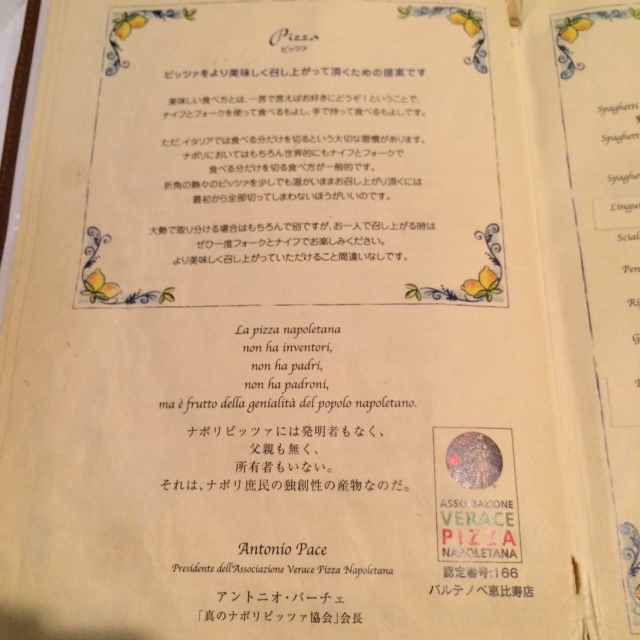 Pizza
ピッツァ
ピッツァをより美味しく召し上がって頂くための提案です
美味しい食べ方とは、一言で言えばお好きにどうぞ！ということで、
ナイフとフォークを使って食べるもよし、手で持って食べるもよしです。
ただ、イタリアでは食べる分だけを切るという大切な習慣があります。
ナポリにおいてはもちろん世界的にもナイフとフォークで
食べる分だけを切る食べ方が一般的です。
折角の熱々のピッツァを少しでも温かいままお召し上がり頂くには
最初から全部切ってしまわないほうがいいのです。
大勢で取り分ける場合はもちろん別ですが、お一人で召し上がる時は
ぜひ一度フォークとナイフでお楽しみください。
より美味しく召し上がっていただけること間違いなしです。
La pizza napoletana
non ha inventori,
non ha padri,
non ha padroni,
ma è frutto della genialità del popolo napoletano.
ナポリピッツァには発明者もなく、
父親も無く、
所有者もいない。
それは、ナポリ庶民の独創性の産物なのだ。
Antonio Pace
Presidente dell'Associazione Verace Pizza Napoletana
アントニオ・パーチェ
「真のナポリピッツァ協会」会長
ASSOCIAZIONE
VERACE
PIZZA
NAPOLETANA
認定番号:166
パルテノペ恵比寿店
Spaghetti
Spaghetti